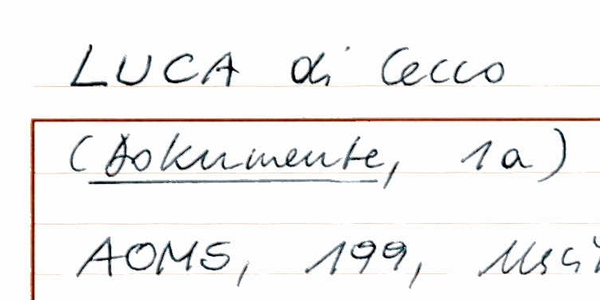 LUCA di Cecco
(Dokumente, 1a)
AOMS, 199,